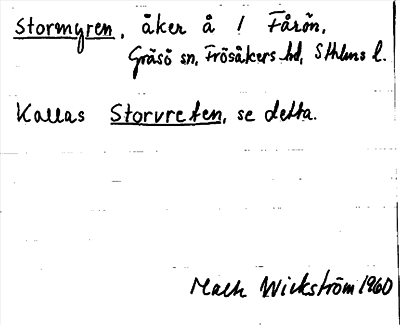 Stormyren, åker å ! Fårön,
Gräsö sn, Frösåkers hd, Sthlms l.
Kallas Storvreten, se detta.
Mach Wickström 1960